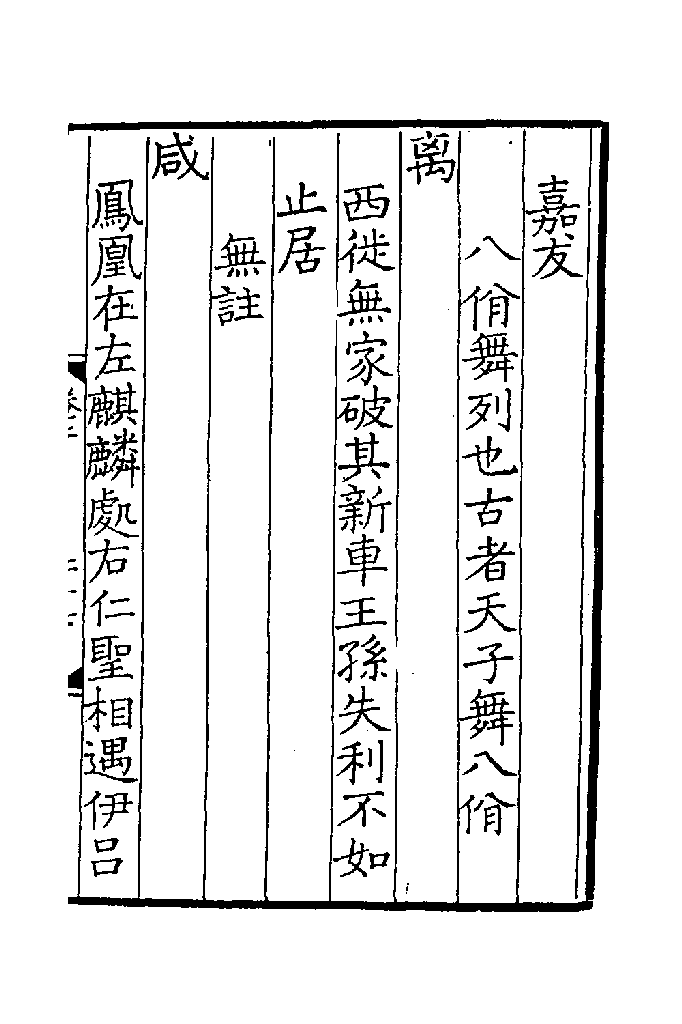 嘉友
八佾舞列也古者天子舞八佾
离
西徙無家破其新車王孫失利不如
止居
無註
咸
鳳凰在左麒麟處右仁聖相遇伊吕